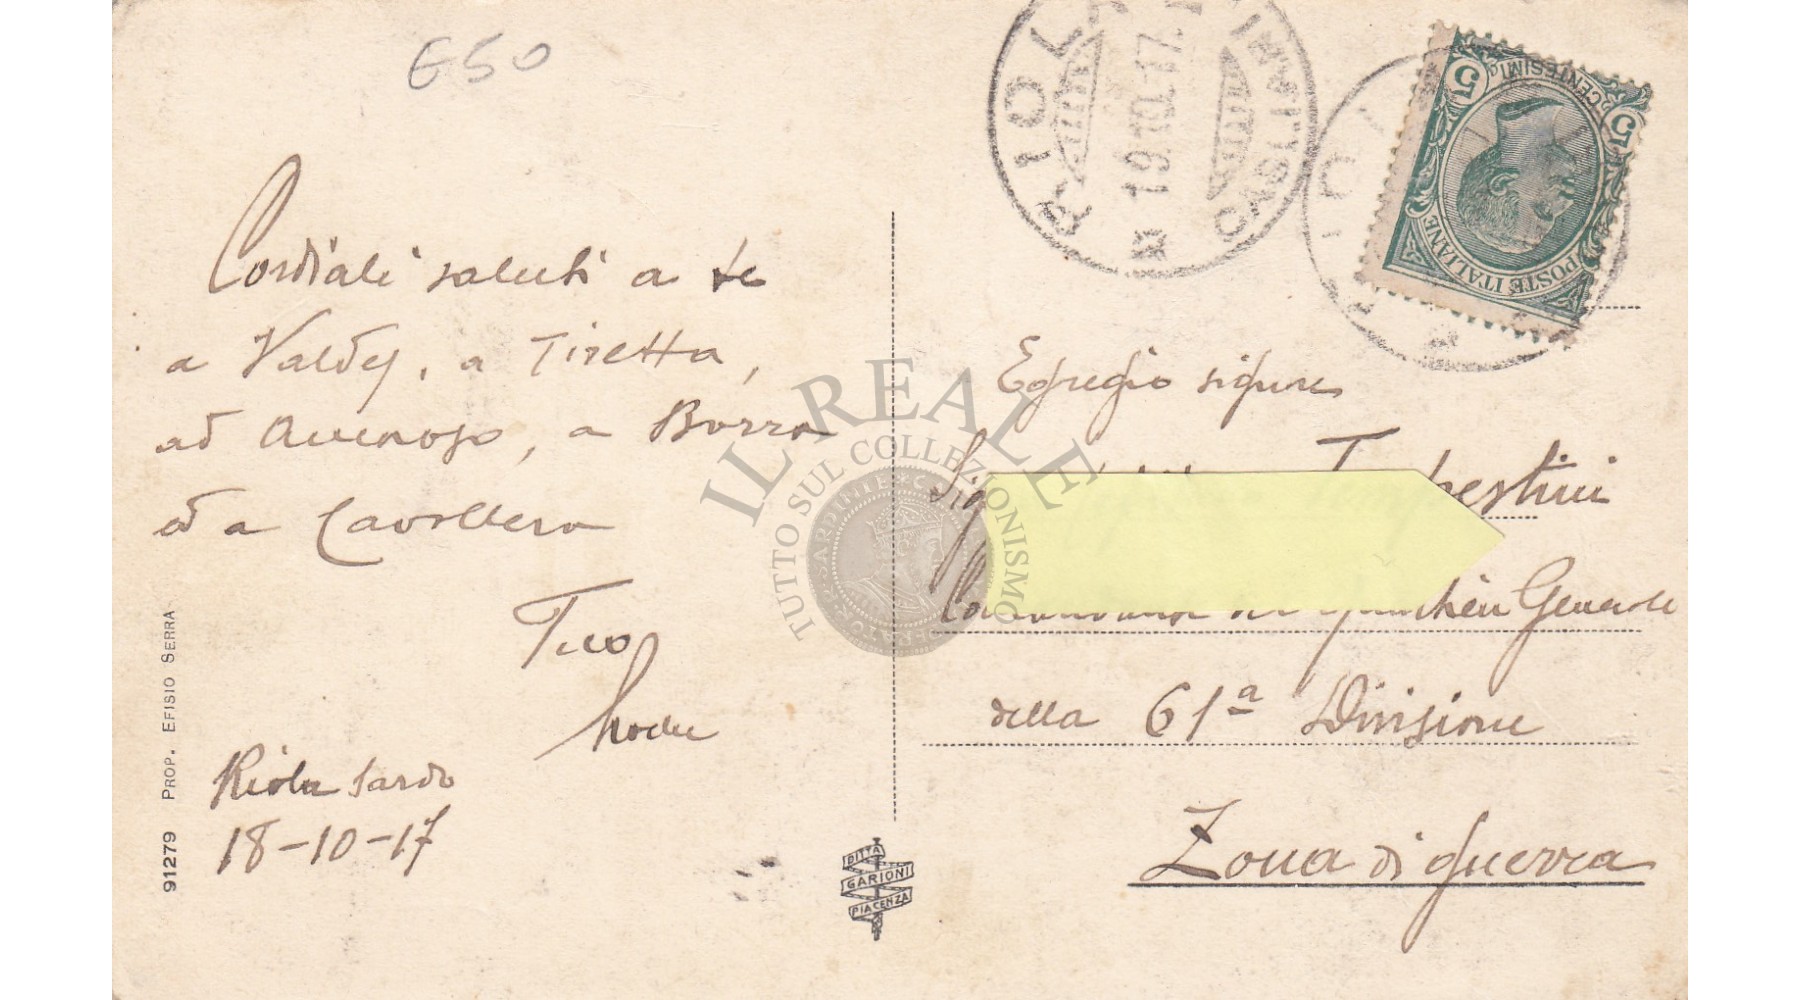 €50
RIOLA
19.10.17.
5 CENTESIMI 5
POSTE ITALIANE
Cordiali saluti a te
a Valdes, a Tiretta,
ad a Borra
ed a Cavallera
Tuo
Riola Sardo
18-10-17
91279 PROP. EFISIO SERRA
DITTA
GARIONI
PIACENZA
Egregio signore
Sig
Comandante del Quartier Generale
della 61ª Divisione
Zona di guerra
IL REALE
TUTTO SUL COLLEZIONISMO